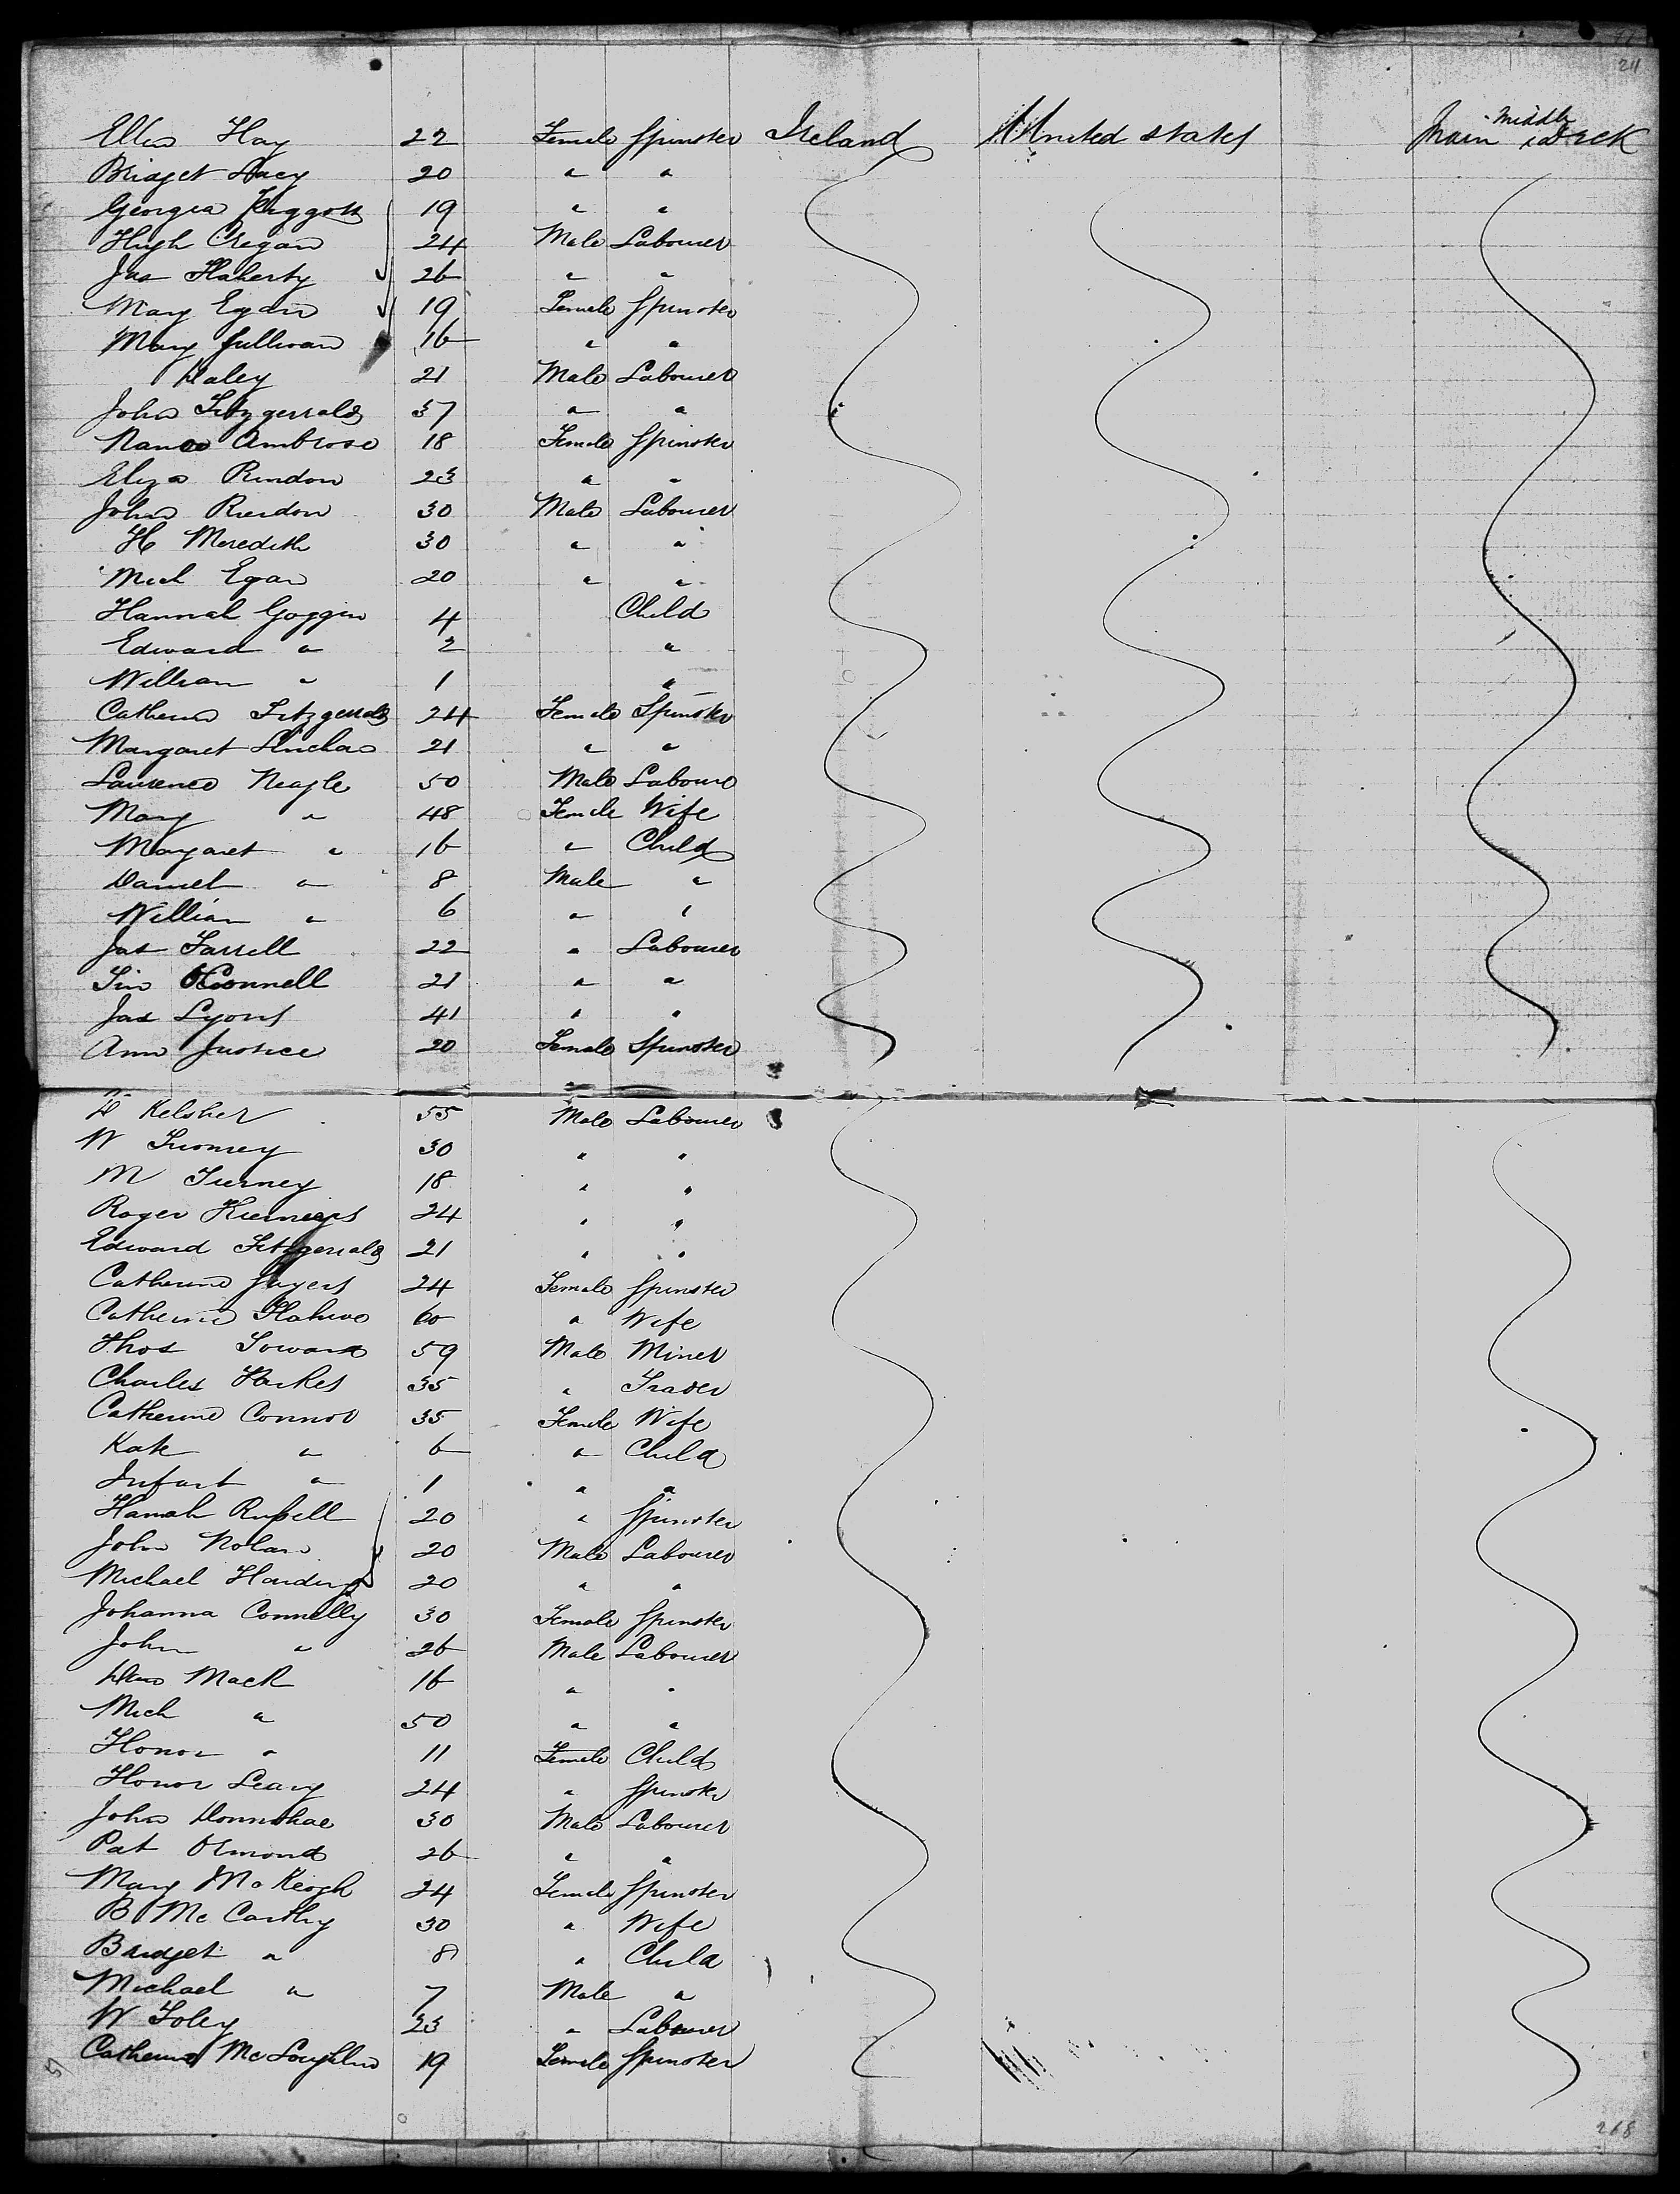 211
Ellen Hay 22 Female Spinster Ireland United states Main Middle deck
Bridget Lacy 20 " "
Georgea Piggott 19 " "
Hugh Cregan 24 Male Labourer
Jas Flaherty 26 " "
Mary Egan 19 Female Spinster
Mary Sullivan 16 " "
Haley 21 Male Labourer
John Fitzgerrald 37 " "
Nance Ambrose 18 Female Spinster
Eliza Rindon 23 " "
John Rierdon 30 Male Labourer
H Meredith 30 " "
Mich Egan 20 " "
Hannah Goggin 4 Child
Edward " 2 "
William " 1 "
Catherine Fitzgerrald 24 Female Spinster
Margaret 21 " "
Laurence Neagle 50 Male Labourer
Mary " 48 Female Wife
Margaret " 16 " Child
Daniel " 8 Male "
William " 6 " "
Jas Farrell 22 " Labourer
Tim O'Connell 21 " "
Jas Lyons 41 " "
Ann Justice 20 Female Spinster
Kelsher 55 Male Labourer
W Twomey 30 " "
M Tierney 18 " "
Roger 24 " "
Edward Fitzgerrald 21 " "
Catherine Sayers 24 Female Spinster
Catherine 60 " Wife
Thos Toward 59 Male Miner
Charles Harkes 35 " Trader
Catherine Connor 35 Female Wife
Kate " 6 " Child
Infant " 1 " "
Hanah Russell 20 " Spinster
John Nolan 20 Male Labourer
Michael Harding 20 " "
Johanna Connelly 30 Female Spinster
John " 26 Male Labourer
Mack 16 " "
Mich " 50 " "
Honor " 11 Female Child
Honor Leary 24 " Spinster
John Donnohae 30 Male Labourer
Pat Ormond 26 " "
Mary McKeogh 24 Female Spinster
B McCarthy 30 " Wife
Bridget " 8 " Child
Michael " 7 Male "
W Foley 23 " Labourer
Catherine McLoughlin 19 Female Spinster
57
268